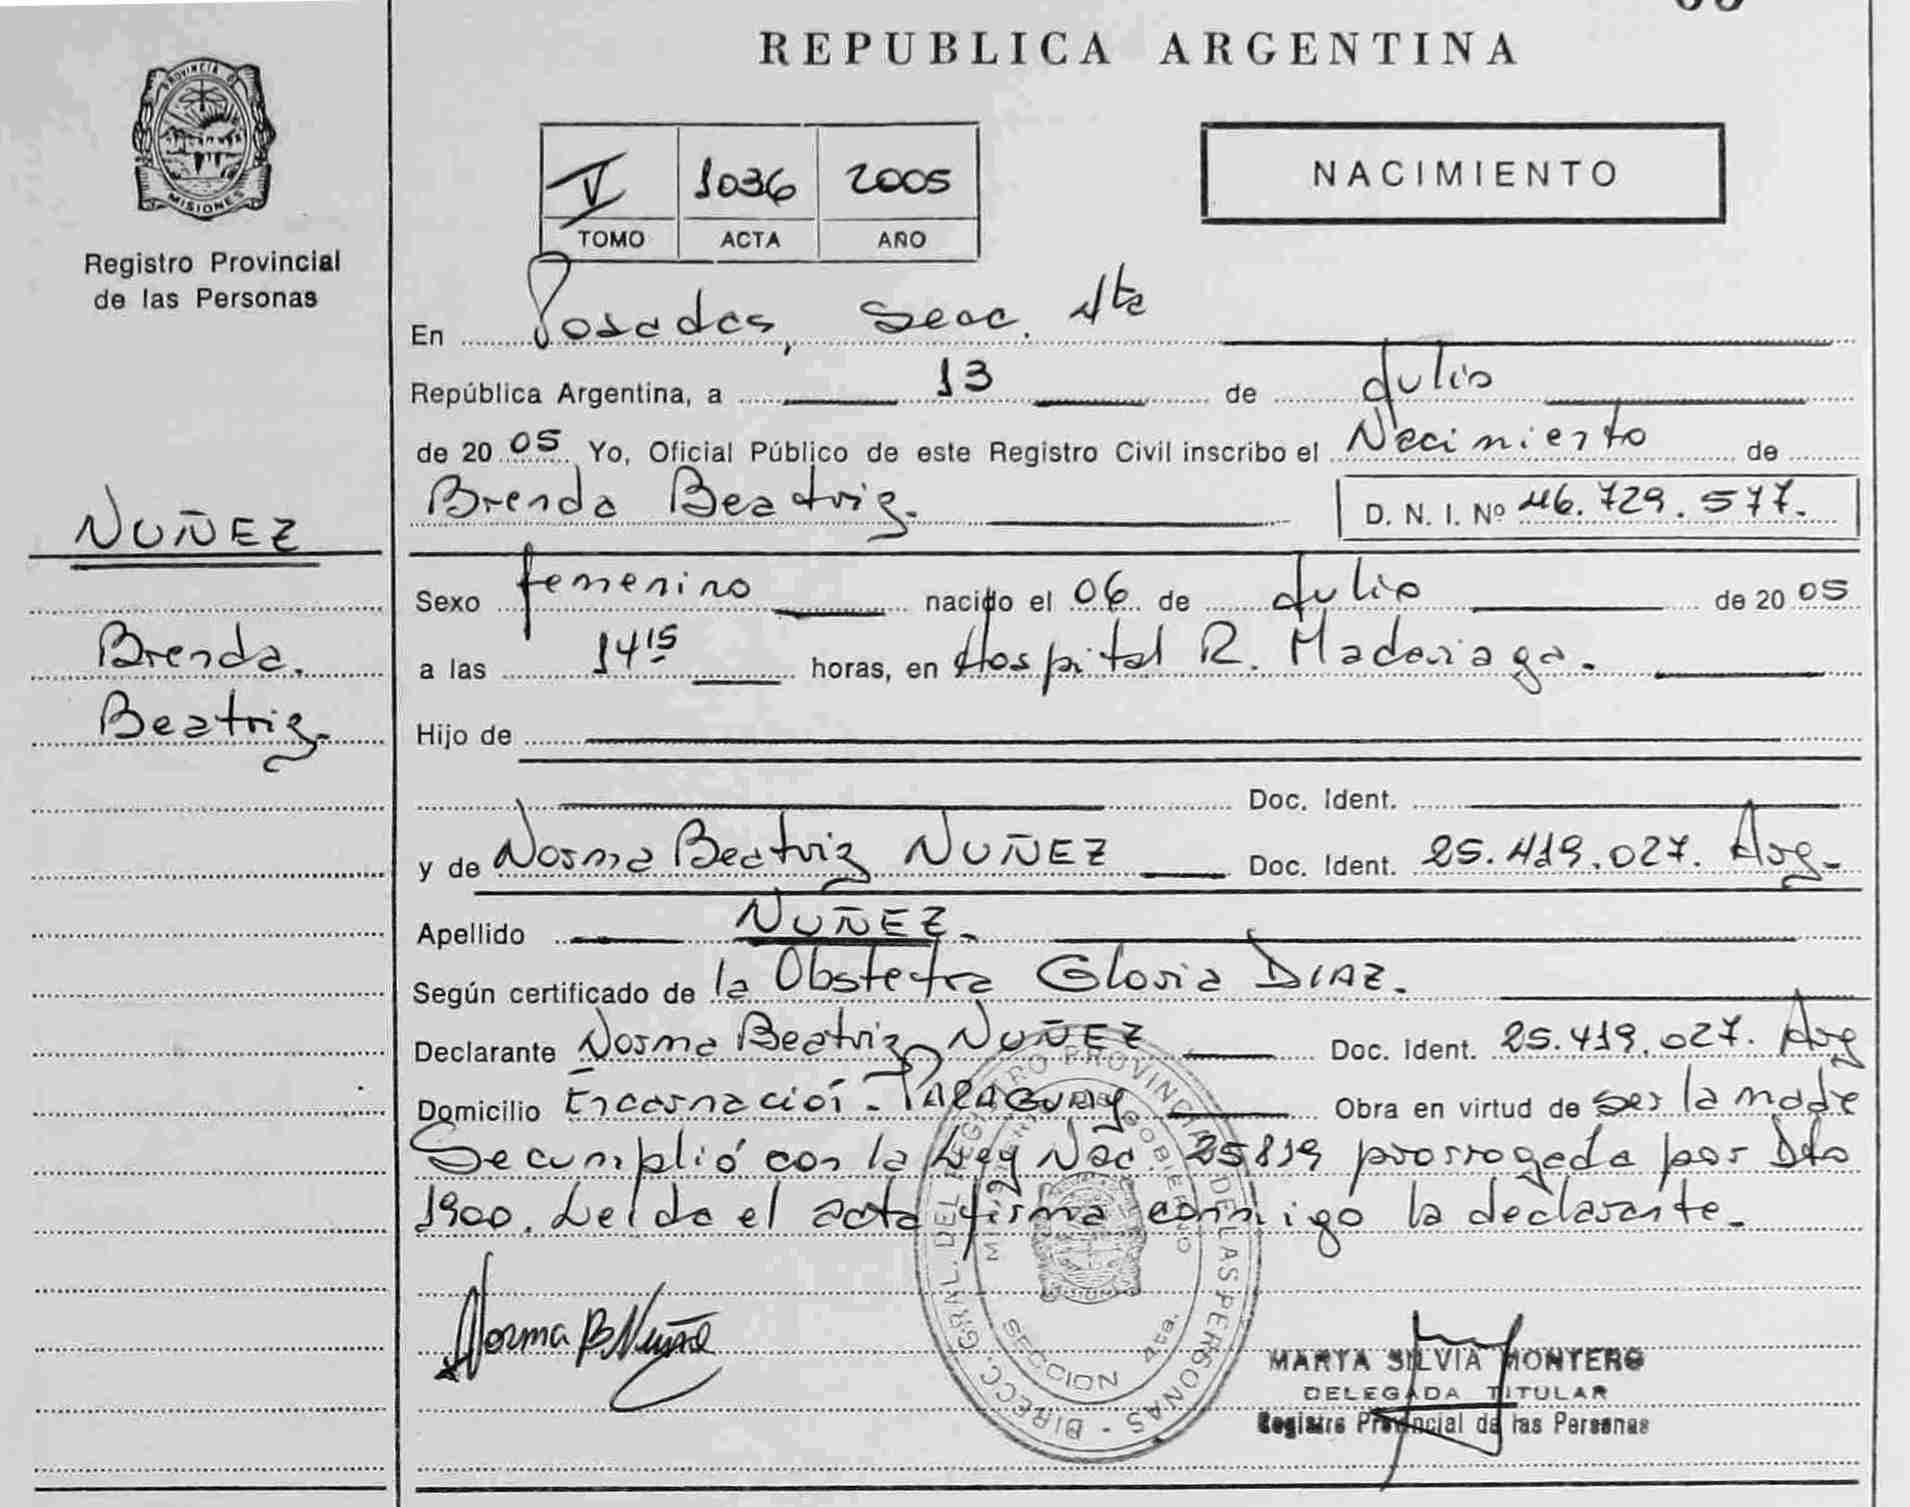 REPUBLICA ARGENTINA
PROVINCIA D
MISIONES
Registro Provincial
de las Personas
V 1036 2005
TOMO ACTA AÑO
NACIMIENTO
En Posadas, Secc. 4ta
República Argentina, a 13 de Julio
de 2005 Yo, Oficial Público de este Registro Civil inscribo el Nacimiento de
Brenda Beatriz. D. N. I. Nº 46.729.577.
NUÑEZ
Brenda.
Beatriz.
Sexo femenino nacido el 06 de Julio de 2005
a las 14 15 horas, en Hospital R. Madariaga.
Hijo de
Doc. Ident.
y de Norma Beatriz NUÑEZ Doc. Ident. 25.419.027. Arg.
Apellido NUÑEZ.
Según certificado de la Obstetra Gloria DIAZ.
Declarante Norma Beatriz NUÑEZ Doc. Ident. 25.419.027. Arg
Domicilio Encarnación - PARAGUAY Obra en virtud de ser la madre
Se cumplió con la Ley Nac. 25819 prorrogada por Dto
1900. Leida el acta firma conmigo la declarante.
Norma B Nuñez
DIRECC. GRAL. DEL REGISTRO PROVINCIAL DE LAS PERSONAS -
SECCION 4ta.
MARTA SILVIA MONTERO
DELEGADA TITULAR
Registro Provincial de las Personas